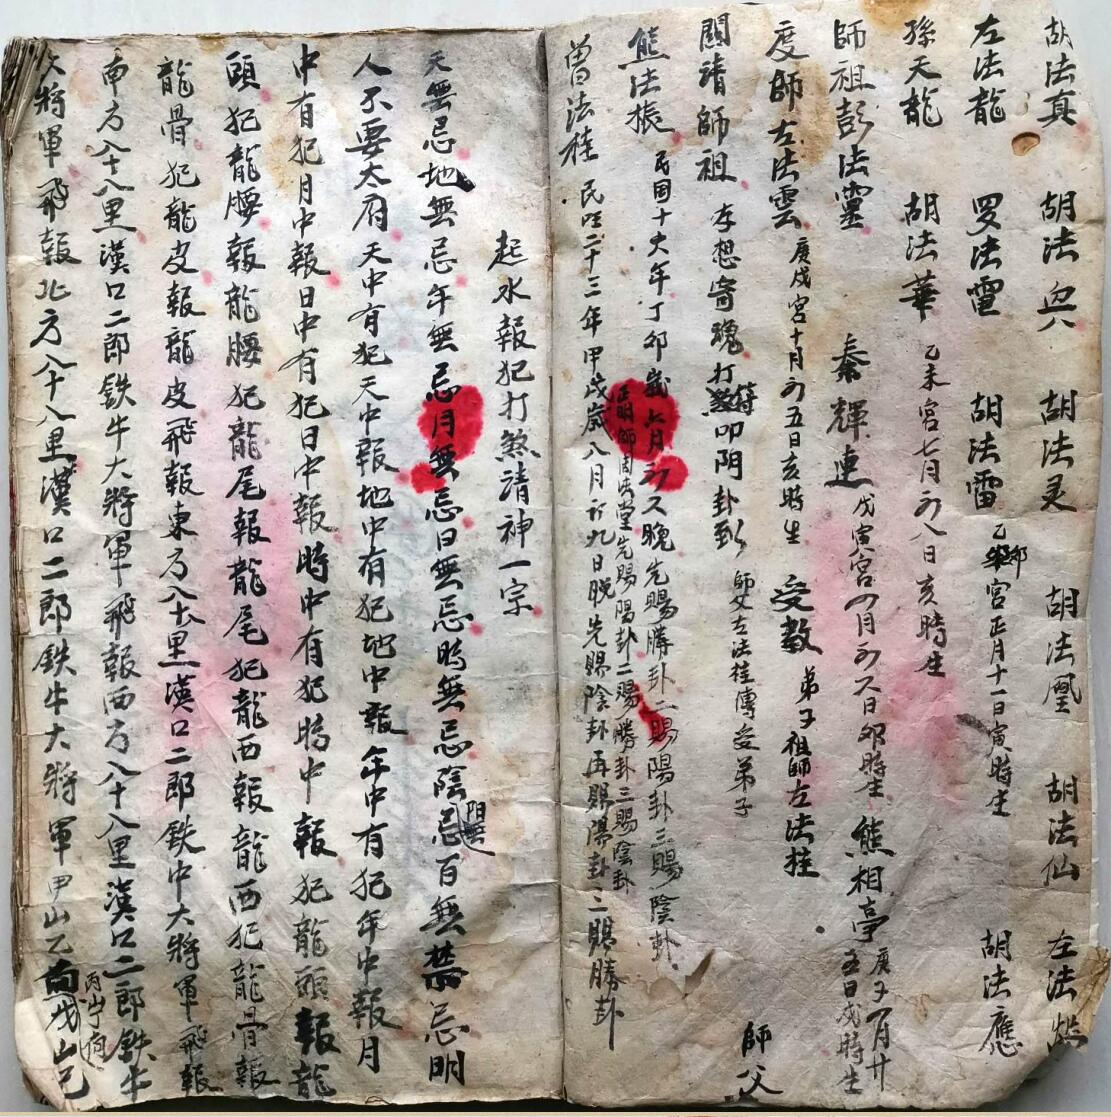 胡法真 胡法興 胡法灵 胡法凰 胡法仙 左法
左法龍 罗法雷 胡法雷 乙卯宮正月十一日寅時生 胡法應
孫天龍 胡法華 乙未宮七月初八日亥時生
師祖彭法靈 秦輝連 戊寅宮四月初六日卯時生 熊相亭 庚子 月廿五日戌時生
度師左法雲 庚戌宮十月初五日亥時生 受教弟子祖師左法桂
關請師祖 存想寄魂打煞符叩阴卦到 師父左法桂傳受弟子 師父
熊法振 民国十六年丁卯歲六月初六晚先賜勝卦二賜陽卦三賜陰卦
正明師周法堂先賜陽卦二賜勝卦三賜陰卦
曾法桂 民国二十三年甲戌歲八月初九日晚先賜陰卦再賜陽卦三賜勝卦
起水報犯打煞請神一宗
天無忌地無忌年無忌月無忌日無忌時無忌陰陽無忌百無禁忌明
人不要太府天中有犯天中報地中有犯地中報年中有犯年中報月
中有犯月中報日中有犯日中報時中有犯時中報犯龍頭報龍
頭犯龍腰報龍腰犯龍尾報龍尾犯龍西報龍西犯龍骨報
龍骨犯龍皮報龍皮飛報東方八十八里漢口二郎鉄牛大將軍飛報
南方八十八里漢口二郎鉄牛大將軍飛報西方八十八里漢口二郎鉄牛
大將軍飛報北方八十八里漢口二郎鉄牛大將軍甲山乙向丙山丁向戊山己